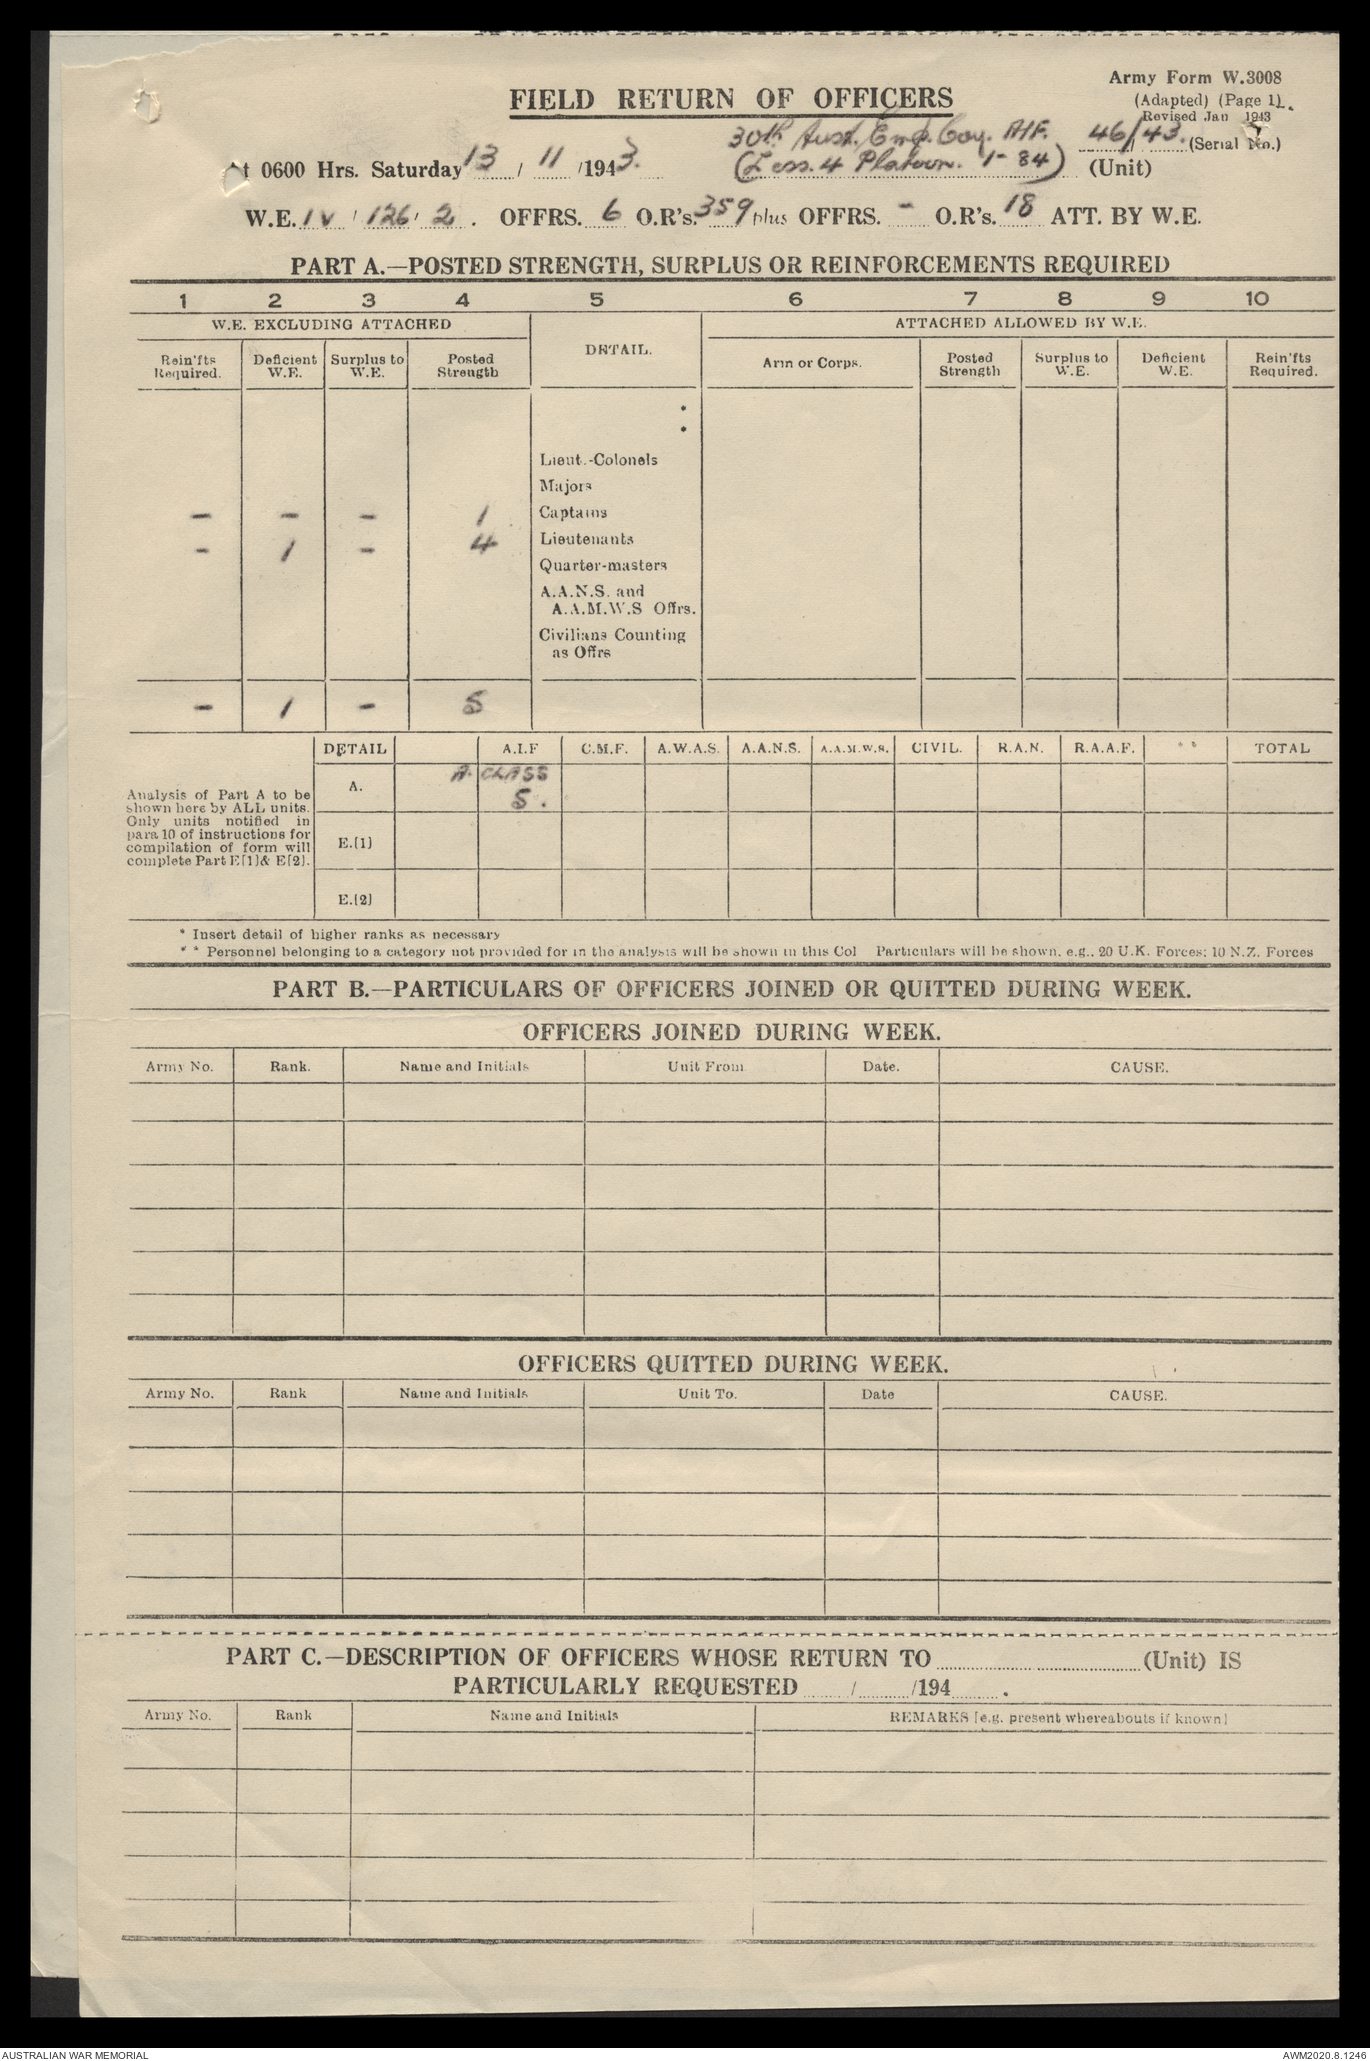 Army Form W.3008
FIELD RETURN OF OFFICERS
(Adapted) (Page 1).
Revised Jan 1943
30th Aust. Emp. Coy. AIF. 46/43. (Serial No.)
At 0600 Hrs. Saturday 13 / 11 /1943. (Less. 4 Platoon. 1-84) (Unit)
W.E. IV / 126 / 2 . OFFRS. 6 O.R's. 359 plus OFFRS. - O.R's. 18 ATT. BY W.E.
PART A.—POSTED STRENGTH, SURPLUS OR REINFORCEMENTS REQUIRED
1 2 3 4 5 6 7 8 9 10
W.E. EXCLUDING ATTACHED DETAIL. ATTACHED ALLOWED BY W.E.
Rein'fts Required. Deficient W.E. Surplus to W.E. Posted Strength Arm or Corps. Posted Strength Surplus to W.E. Deficient W.E. Rein'fts Required.
*
*
Lieut.-Colonels
Majors
- - - 1 Captains
- 1 - 4 Lieutenants
Quarter-masters
A.A.N.S. and
A.A.M.W.S Offrs.
Civilians Counting
as Offrs
- 1 - 5
DETAIL A.I.F C.M.F. A.W.A.S. A.A.N.S. A.A.M.W.S. CIVIL. R.A.N. R.A.A.F. * * TOTAL
A. A. CLASS
5.
Analysis of Part A to be
shown here by ALL units.
Only units notified in
para 10 of instructions for
compilation of form will
complete Part E[1]& E[2].
E.[1]
E.[2]
* Insert detail of higher ranks as necessary
* * Personnel belonging to a category not provided for in the analysis will be shown in this Col Particulars will be shown. e.g.. 20 U.K. Forces; 10 N.Z. Forces
PART B.—PARTICULARS OF OFFICERS JOINED OR QUITTED DURING WEEK.
OFFICERS JOINED DURING WEEK.
Army No. Rank. Name and Initials Unit From Date. CAUSE.
OFFICERS QUITTED DURING WEEK.
Army No. Rank Name and Initials Unit To. Date CAUSE.
PART C.—DESCRIPTION OF OFFICERS WHOSE RETURN TO (Unit) IS
PARTICULARLY REQUESTED / /194 .
Army No. Rank Name and Initials REMARKS [e.g. present whereabouts if known]
AUSTRALIAN WAR MEMORIAL AWM2020.8.1246